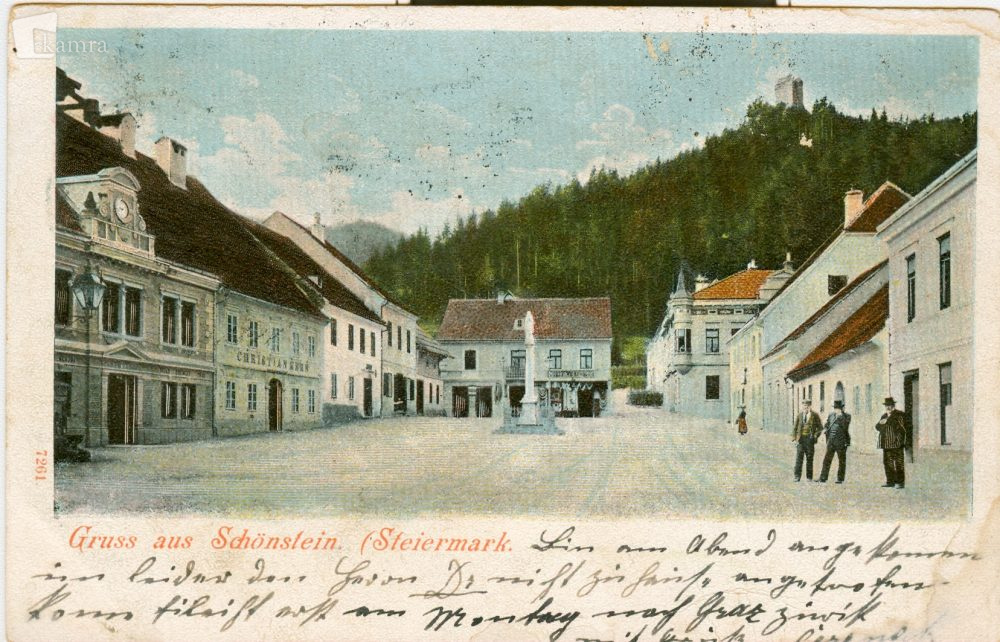 kamra
CHRISTIAN
7261
Gruss aus Schönstein. (Steiermark.
Bin am Abend angekomen
un leider den Herrn Dr nicht zu hause angetrofen
kome fileicht erst am Montag nach Graz zurück
mit